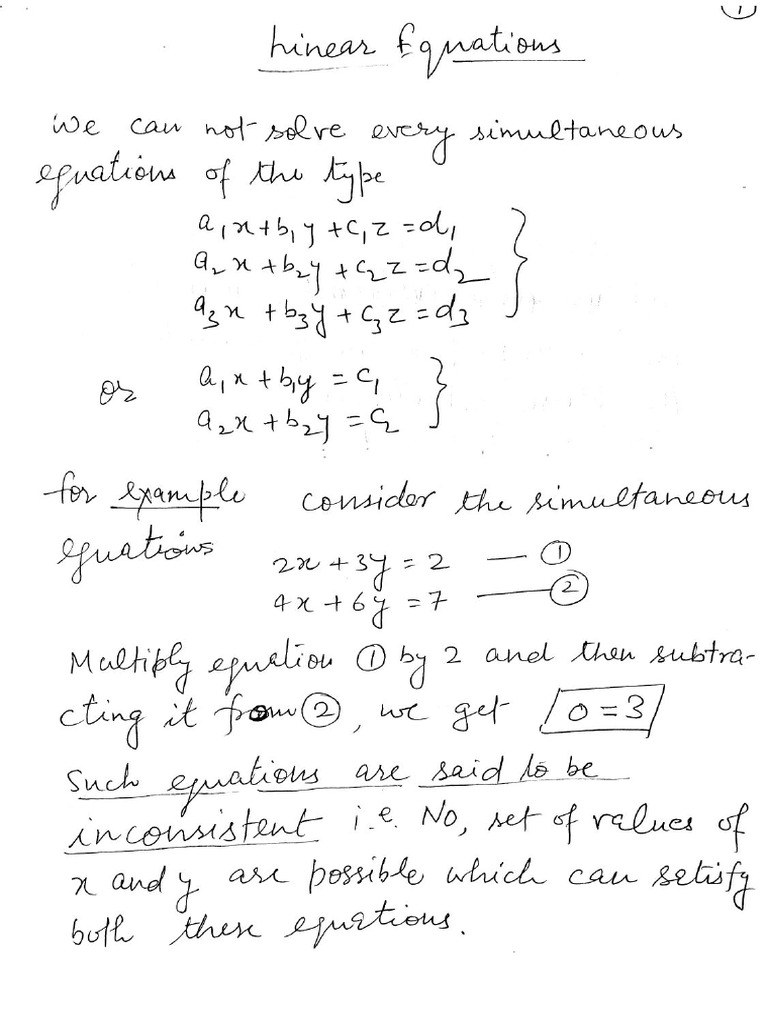 1
Linear Equations
We can not solve every simultaneous
equations of the type
a₁x+b₁y+c₁z=d₁
a₂x+b₂y+c₂z=d₂
a₃x+b₃y+c₃z=d₃
or a₁x+b₁y=c₁
a₂x+b₂y=c₂
for example consider the simultaneous
equations
2x+3y=2 — ①
4x+6y=7 — ②
Multiply equation ① by 2 and then subtra-
cting it from ②, we get 0=3
Such equations are said to be
inconsistent i.e. No, set of values of
x and y are possible which can setisfy
both these equations.